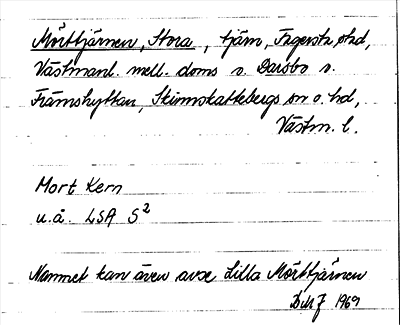 Mörttjärnen, Stora, tjärn, Fagersta stad,
Västmanl. mell. doms o. Darsbo o.
Främshyttan, Skinnskattebergs sn o. hd,
Västm. l.
Mort Kern
u.å. LSA S2
Namnet kan även avse Lilla Mörttjärnen
1969